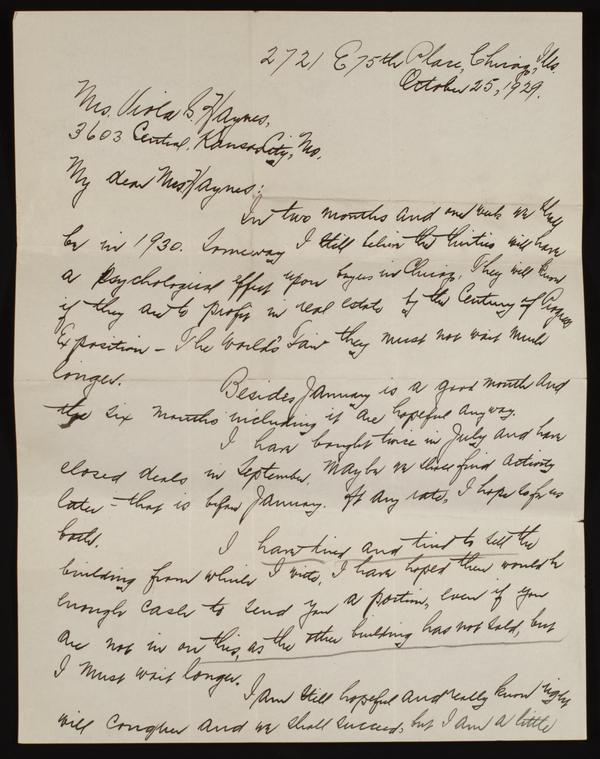 2721 E 75th Place, Chicag, Ills.
October 25, 1929.
Mrs. Viola B. Haynes,
3603 Central, Kansas City, Mo.
My dear Mrs Haynes:
In two months and one week we shall
be in 1930. Someway I still believe the thirties will have
a psychological effect upon buyers in Chicag. They will know
if they are to profit in real estate by the Century of Progress
Exposition — The World's Fair they must not wait much
longer.
Besides January is a good month and
the six months including it are hopeful anyway.
I have bought twice in July and have
closed deals in September. Maybe we shall find activity
later — that is before January. At any rate, I hope so for us
both.
I have tried and tried to sell the
building from which I write. I have hoped there would be
enough cash to send you a portion, even if you
are not in on this, as the other building has not sold, but
I must wait longer.
I am still hopeful and really know right
will conquer and we shall succeed, but I am a little